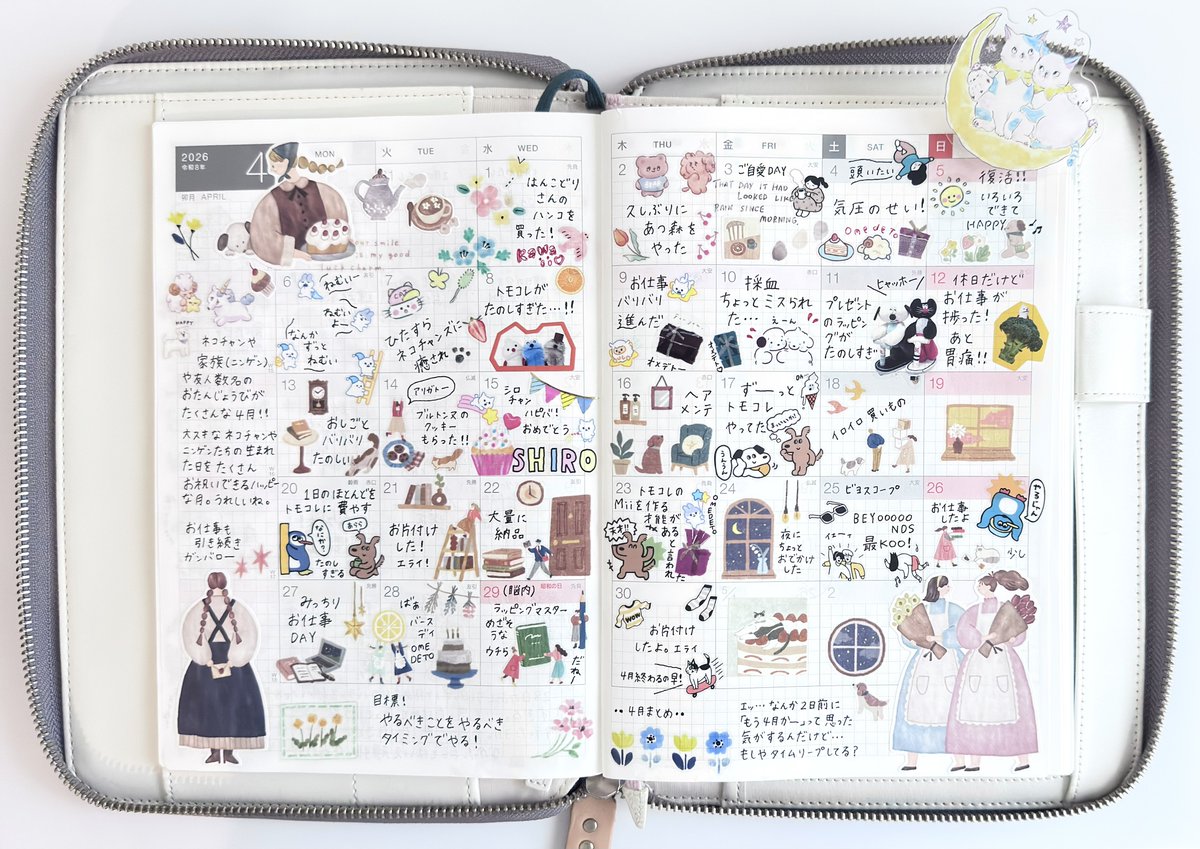 2026
令和8年
4
卯月 APRIL
MON
火 TUE
水 WED
木 THU
金 FRI
土 SAT
日
1
先負
はんこどり
さんの
ハンコを
買った!
KaWa
ii
your smile
is my good
luck charm
2
久しぶりに
あつ森を
やった
3
大安
ご自愛DAY
THAT DAY IT HAD
LOOKED LIKE
RAIN SINCE
MORNING.
4
頭いたい
気圧のせい!
OMEDETO
5
復活!!
いろいろ
できて
HAPPY
HAPPY
ネコチャンや
家族(ニンゲン)
や友人数名の
おたんじょうびが
たくさんな4月!!
大スキなネコチャンや
ニンゲンたちの生まれ
た日をたくさん
お祝いできるハッピー
な月。うれしいね。
お仕事も
引き続き
ガンバロー
6
ねむいー
ねむい
よ〜
なんか
ずっと
ねむい
7
ひたすら
ネコチャンズに
癒され
8
トモコレが
たのしすぎた…!!
9
大安
お仕事
バリバリ
進んだ
オメデトー
10
赤口
採血
ちょっとミスられ
た…
えーん
11
先勝
ヒャッホー
プレゼント
のラッピン
グが
たのしすぎ
12
友引
休日だけど
お仕事が
捗った!
あと
胃痛!!
13
おしごと
バリバリ
たのしい
14
仏滅
アリガトー
ブルトンヌの
クッキー
もらった!!
15
大安
シロ
チャン
ハピバ!
おめでとう
SHIRO
16
赤口
ヘア
メンテ
17
ずーっと
トモコレ
やってた
18
イロイロ買いもの
19
大安
20
穀雨
赤口
1日のほとんどを
トモコレに費やす
なにか?
あらら
たのし
すぎる
21
先勝
お片付け
した!
エライ!
22
友引
大量に
納品
23
トモコレの
Miiを作る
才能が
ある
と言われた
OMEDETO
24
夜に
ちょっと
おでかけ
した
25
ビヨスコープ
BEYOOOOO
NDS
最KOO!
イエーイ
26
お仕事
したよ
少し
27
先勝
みっちり
お仕事
DAY
28
友引
ばぁ
バース
デイ
OME
DETO
29
昭和の日
先負
(脳内)
ラッピングマスター
めざそ
うな
ウチら
だね
30
WOW
お片付け
したよ。エライ
4月終わるの早!
2
目標!
やるべきことをやるべき
タイミングでやる!
‥4月まとめ‥
エッ…なんか2日前に
「もう4月かー」って思った
気がするんだけど…
もしやタイムリープしてる?